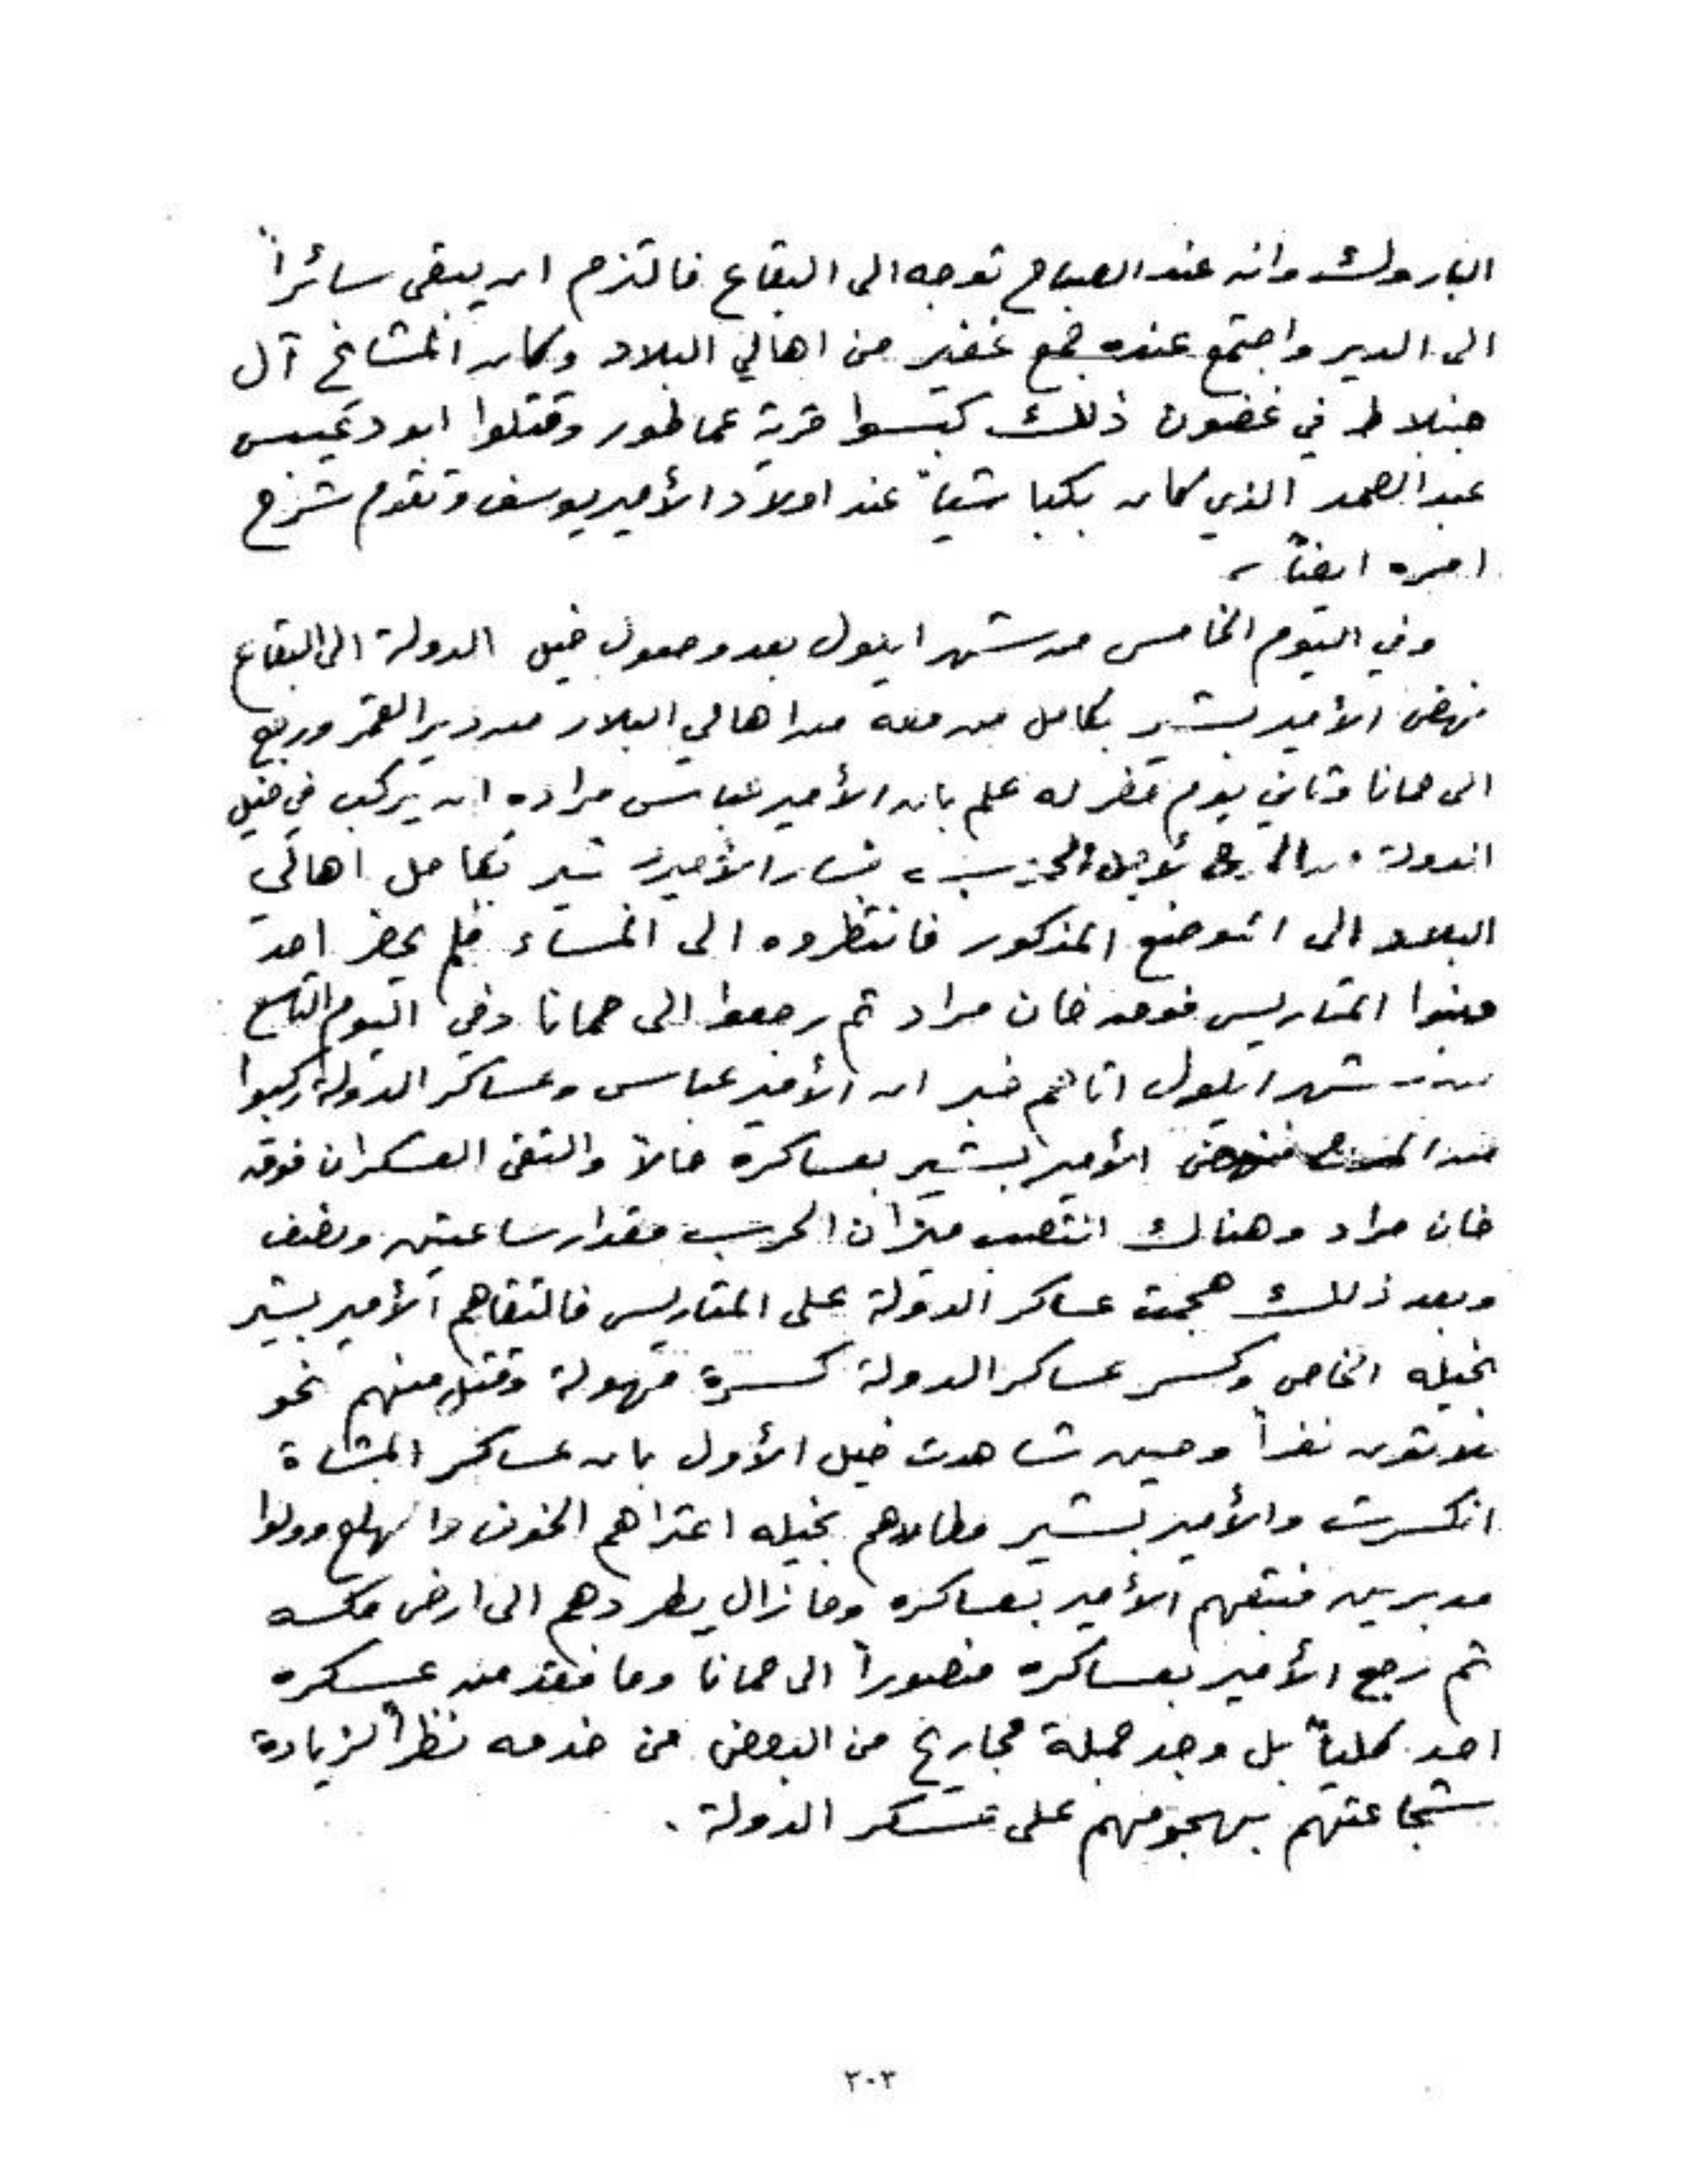 الباروك وانه عند الصباح توجه الى البقاع فالتزم ان يبقى سائراً
الى الدير واجتمع عنده جمع غفير من اهالي البلاد وكان المشايخ آل
جنبلاط في غضون ذلك كبسوا قرية عماطور وقتلوا ابو دعيبس
عبد الصمد الذي كان بكباشياً عند اولاد الأمير يوسف وتقدم شرح
امره ايضاً
وفي اليوم الخامس من شهر ايلول بعد وصول خيل الدولة الى البقاع
نهض الأمير بشير بكامل من معه من اهالي البلاد من دير القمر ورجع
الى حمانا وثاني يوم حضر له علم بان الأمير عباس مراده ان يركب في خيل
الدولة من المرج لأجل الحرب فسار الأمير بشير بكامل اهالي
البلاد الى الموضع المذكور فانتظروه الى المساء فلم يحضر احد
وبنوا المتاريس فوق خان مراد ثم رجعوا الى حمانا وفي اليوم التاسع
من شهر ايلول اتاهم خبر ان الأمير عباس وعساكر الدولة ركبوا
من المرج فنهض الأمير بشير بعساكره حالاً والتقى العسكران فوق
خان مراد وهناك انتصب ميزان الحرب مقدار ساعتين ونصف
وبعد ذلك هجمت عساكر الدولة على المتاريس فالتقاهم الأمير بشير
بخيله الخاص وكسر عساكر الدولة كسرة مهولة وقتل منهم نحو
ثلاثون نفراً وحين شاهدت خيل الأول بان عساكر المشاة
انكسرت والأمير بشير مطاردهم بخيله اعتراهم الخوف والهلع وولوا
مدبرين فتبعهم الأمير بعساكره وما زال يطردهم الى ارض مكسه
ثم رجع الأمير بعساكره منصوراً الى حمانا وما فقد من عسكره
احد كلياً بل وجد جملة مجاريح من البعض من خدمه نظراً لزيادة
شجاعتهم بهجومهم على عسكر الدولة .
٣٠٣